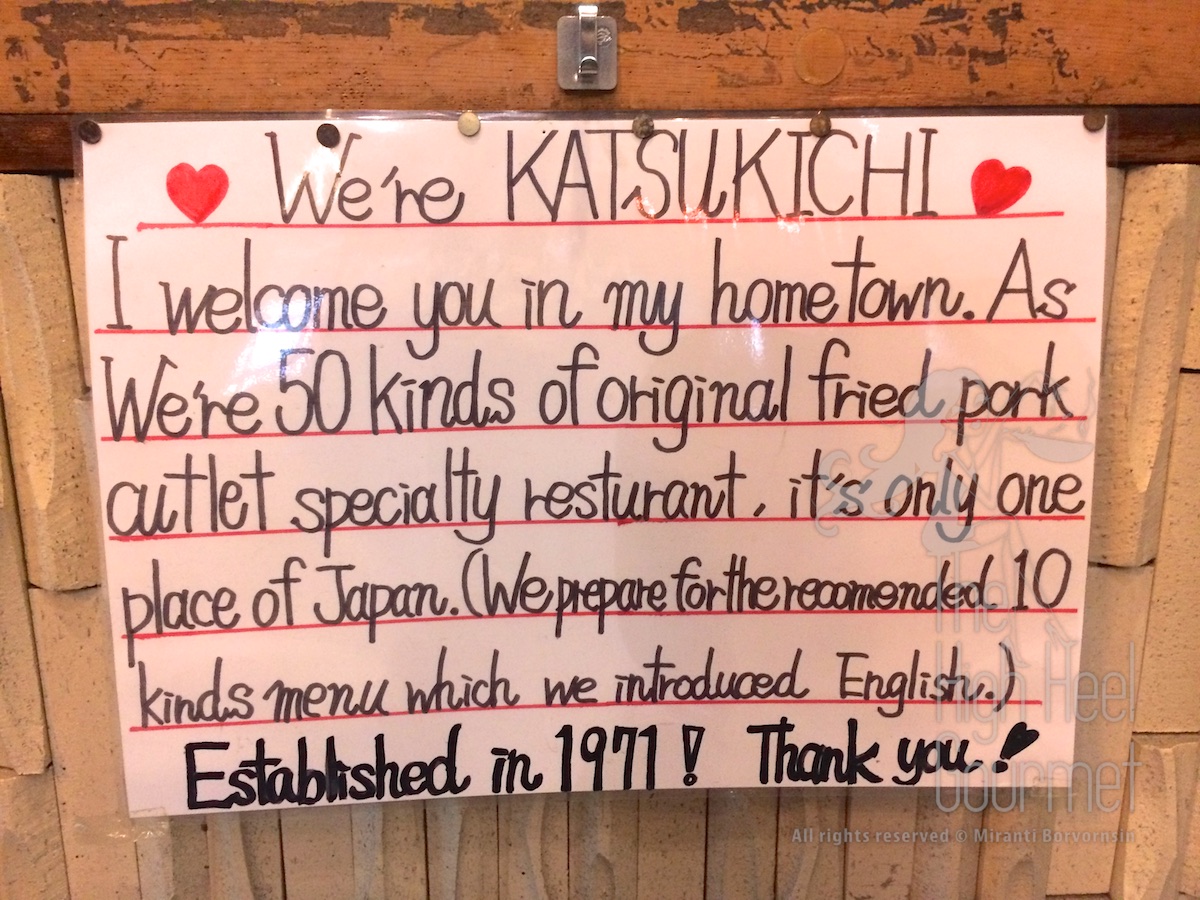 We're KATSUKICHI
I welcome you in my hometown. As
We're 50 kinds of original fried pork
cutlet specialty resturant, it's only one
place of Japan. (We prepare for the recomended 10
kinds menu which we introduced English.)
Established in 1971! Thank you!
The
High Heel
Gourmet
All rights reserved © Miranti Borvornsin